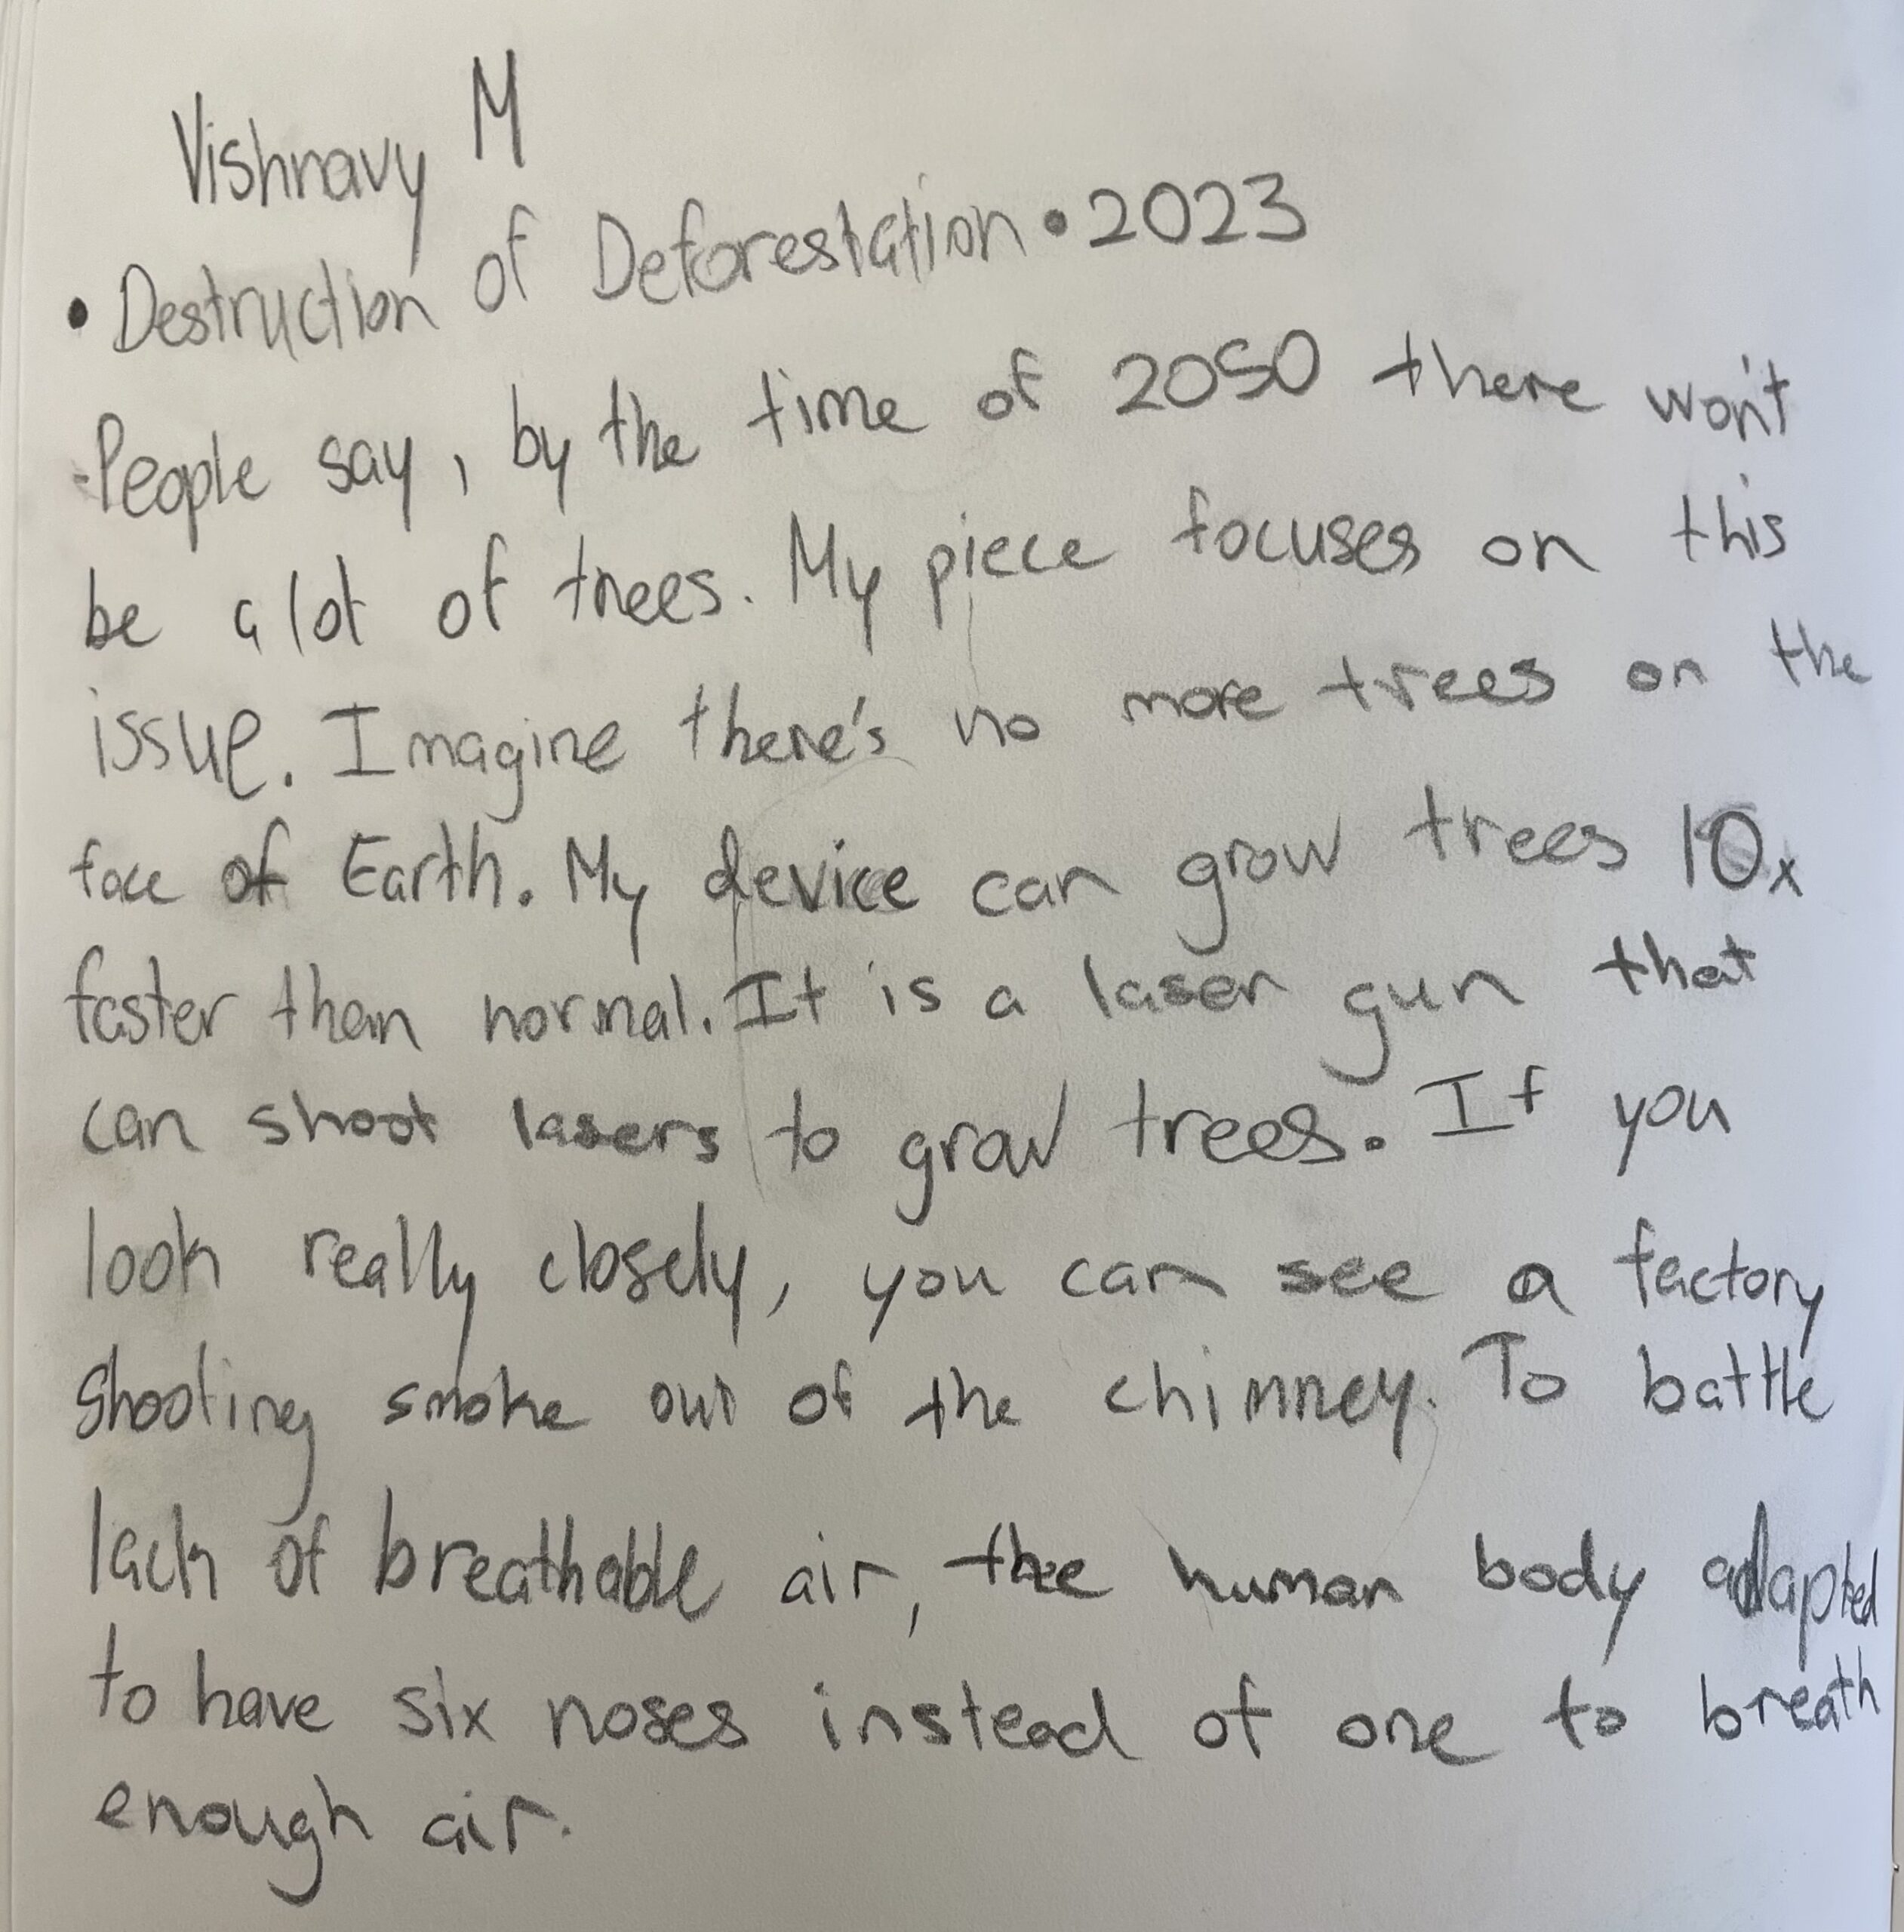 Vishnavy M
• Destruction of Deforestation • 2023
-People say, by the time of 2050 there won't
be a lot of trees. My piece focuses on this
issue. Imagine there's no more trees on the
face of Earth. My device can grow trees 10x
faster than normal. It is a laser gun that
can shoot lasers to grow trees. If you
look really closely, you can see a factory
shooting smoke out of the chimney. To battle
lack of breathable air, the human body adapted
to have six noses instead of one to breath
enough air.